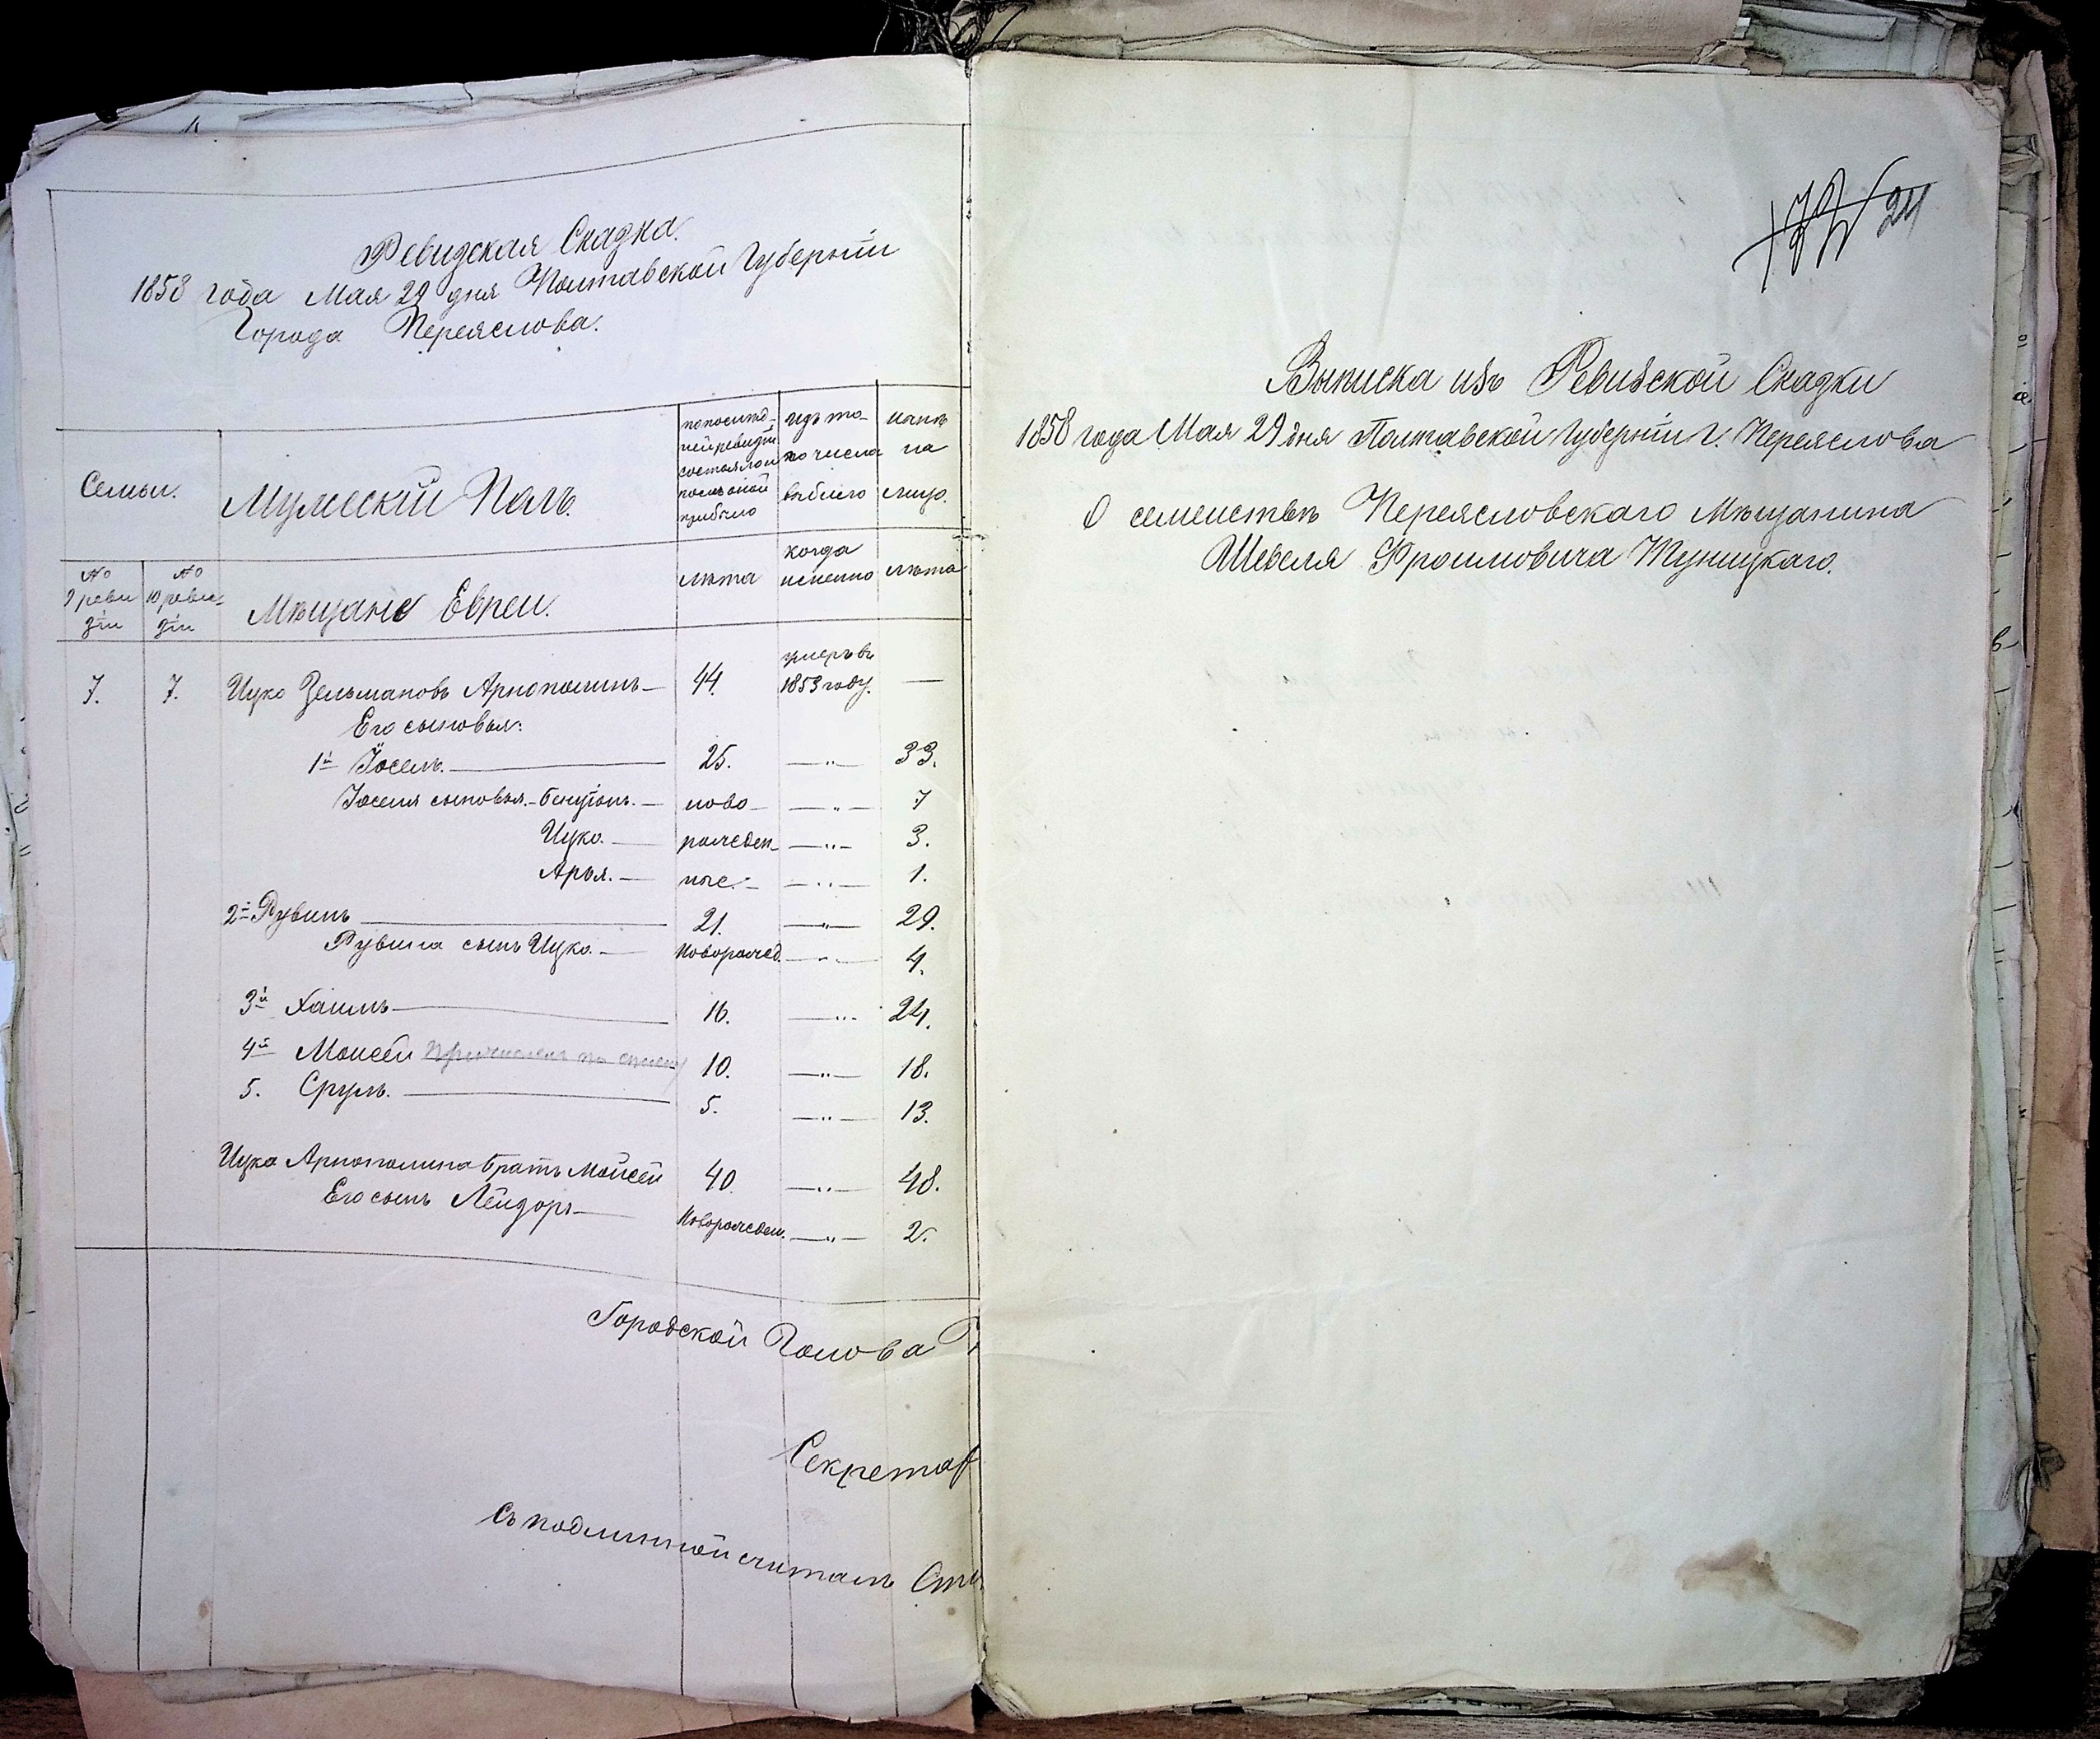 Ревизская Сказка.
1858 года Мая 29 дня Полтавской Губерніи
Города Переяслова.
Семьи.
Мужескій Полъ.
по послѣд-
ней ревизіи
состояло и
послѣ оной
прибыло
изъ то-
го числа
выбыло
нынѣ
на
лицо.
№
9 реви
зіи
№
10 реви-
зіи
Мѣщане Евреи.
лѣта
когда
именно
лѣта
7. 7. Ицко Зельмановъ Арнополинъ— 44. умеръ въ
1853 году. —
Его сыновья:
1й Іосель. — 25. —"— 33.
Іоселя сыновья.— — ново —"— 7
Ицко. — рожден- —"— 3.
Арья. — ные.— —"— 1.
2й Рувинъ — 21. —"— 29.
Рувина сынъ Ицко. — Новорожд. —"— 4.
3й Хаимъ — 16. —"— 24.
4й Моисей 10. —"— 18.
5. Сруль. — 5. —"— 13.
Ицка Арнополина братъ Мойсей 40. —"— 48.
Его сынъ Лейзоръ — Новорожден. —"— 2.
Городской Голова
Секретар
Съ подлинной считалъ
24
Выписка изъ Ревизской Сказки
1858 года Мая 29 дня Полтавской Губерніи г. Переяслова
О семействѣ Переясловскаго Мѣщанина
Шевеля Фроимовича Туницкаго.